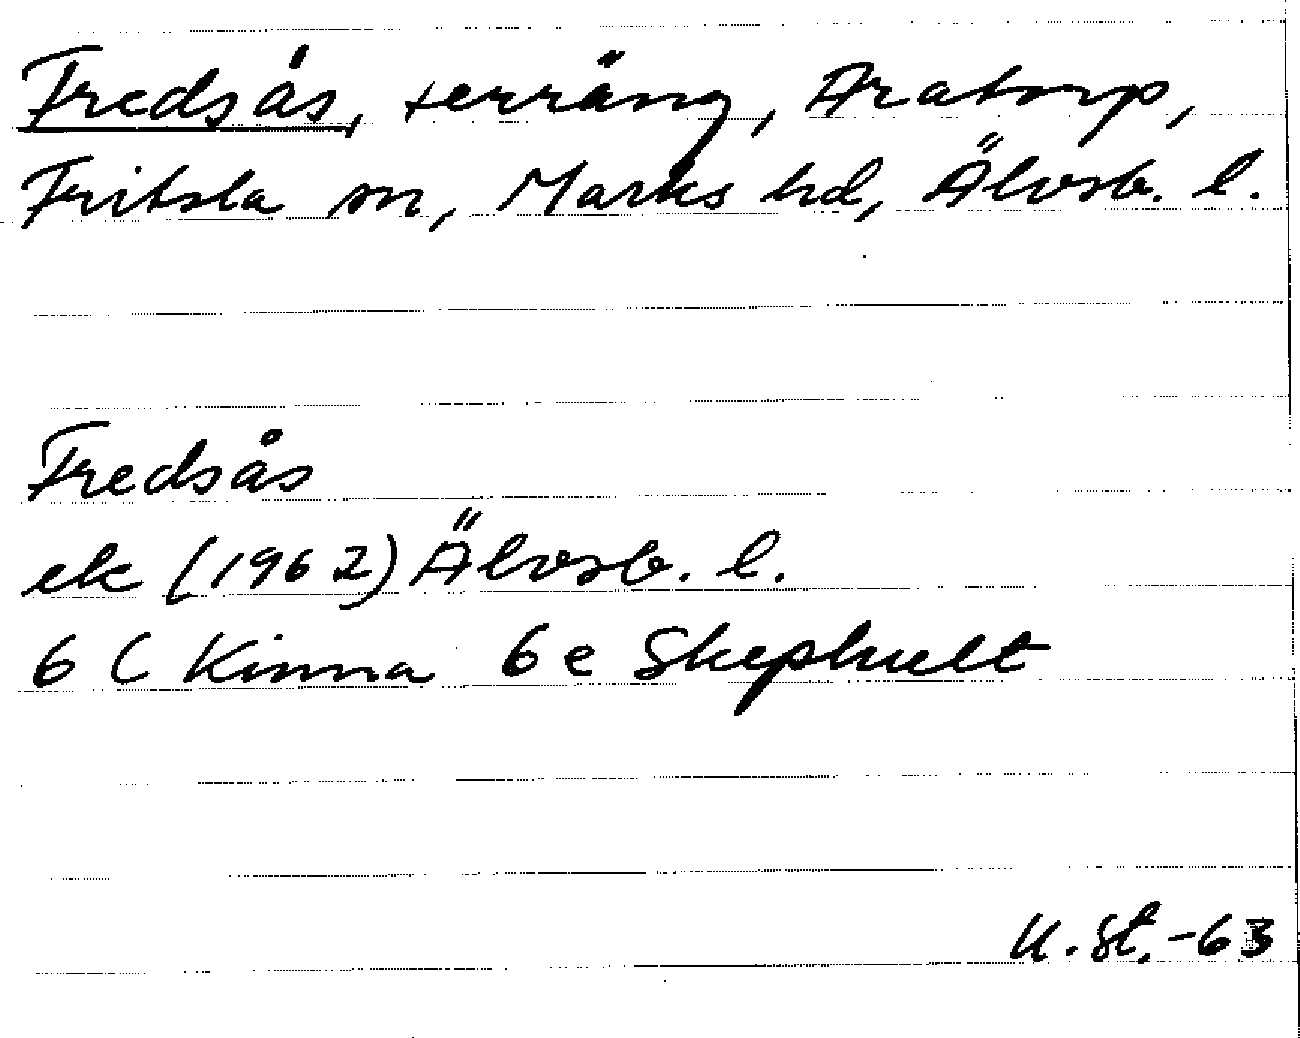 Fredsås, terräng, Aratorp,
Fritsla sn, Marks hd, Älvsb. l.
Fredsås
ek (1962) Älvsb. l.
6 C Kinna 6e Skephult
U. St. -63